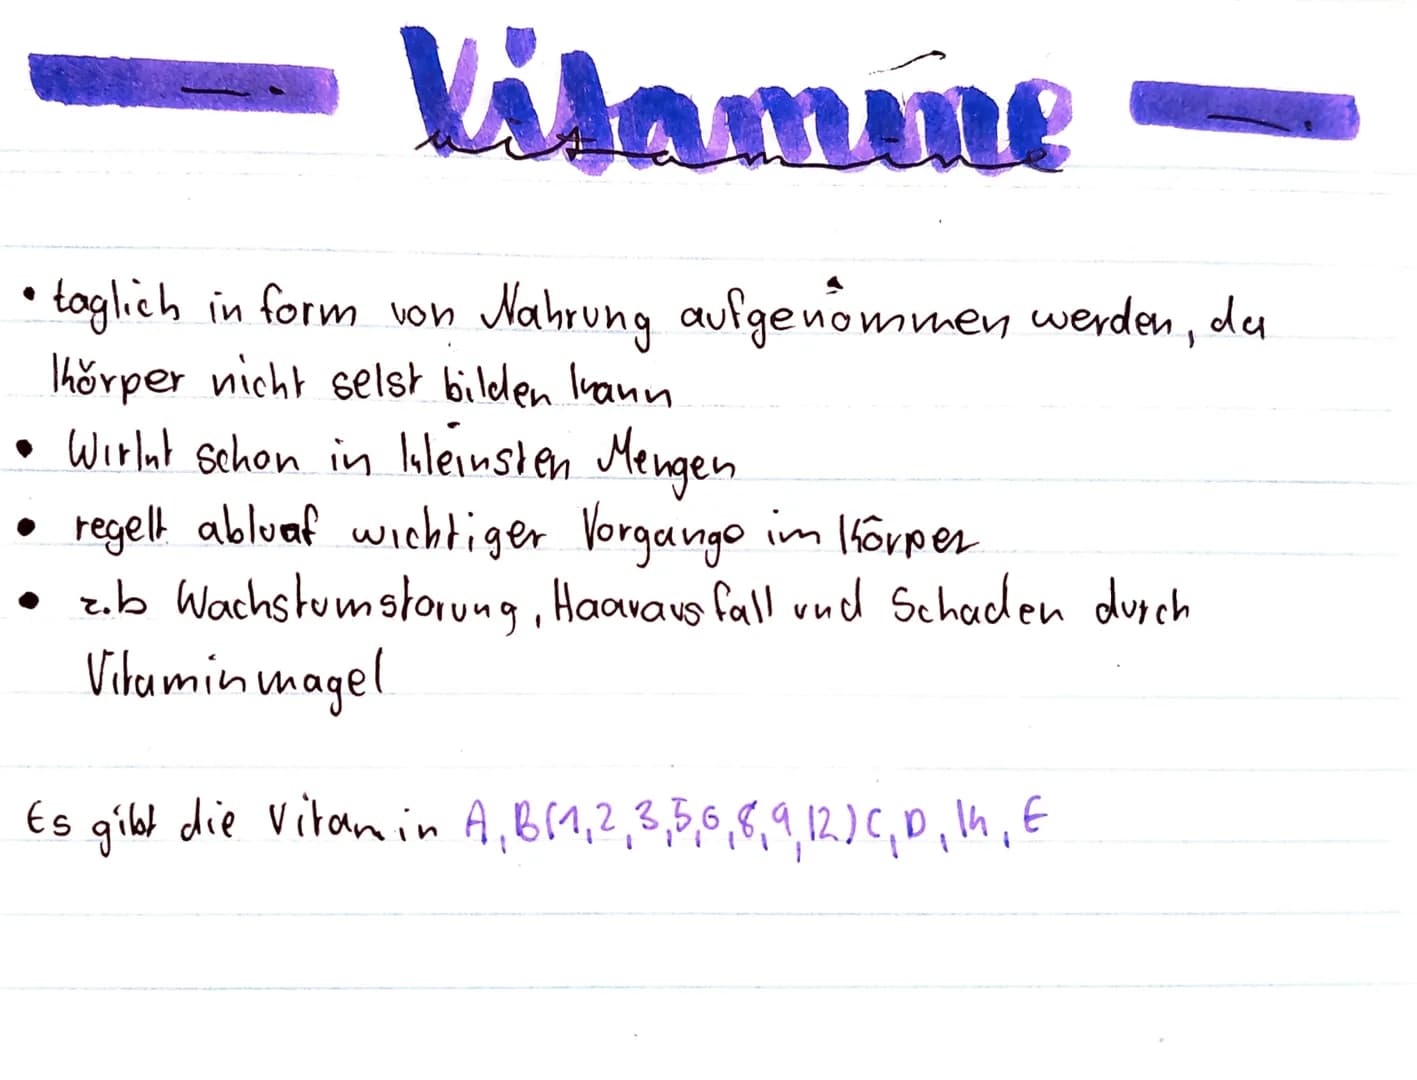 Vitamine
vitamine
• taglich in form von Nahrung aufgenommen werden, da
Körper nicht selst bilden kann
• Wirkt schon in kleinsten Mengen
• regelt abluaf wichtiger Vorgange im Körper
• z.b Wachstumstorung, Haarausfall und Schaden durch
Vitaminmagel
Es gibt die Vitamin A, B(1,2,3,5,6,8,9,12) C, D, K, E